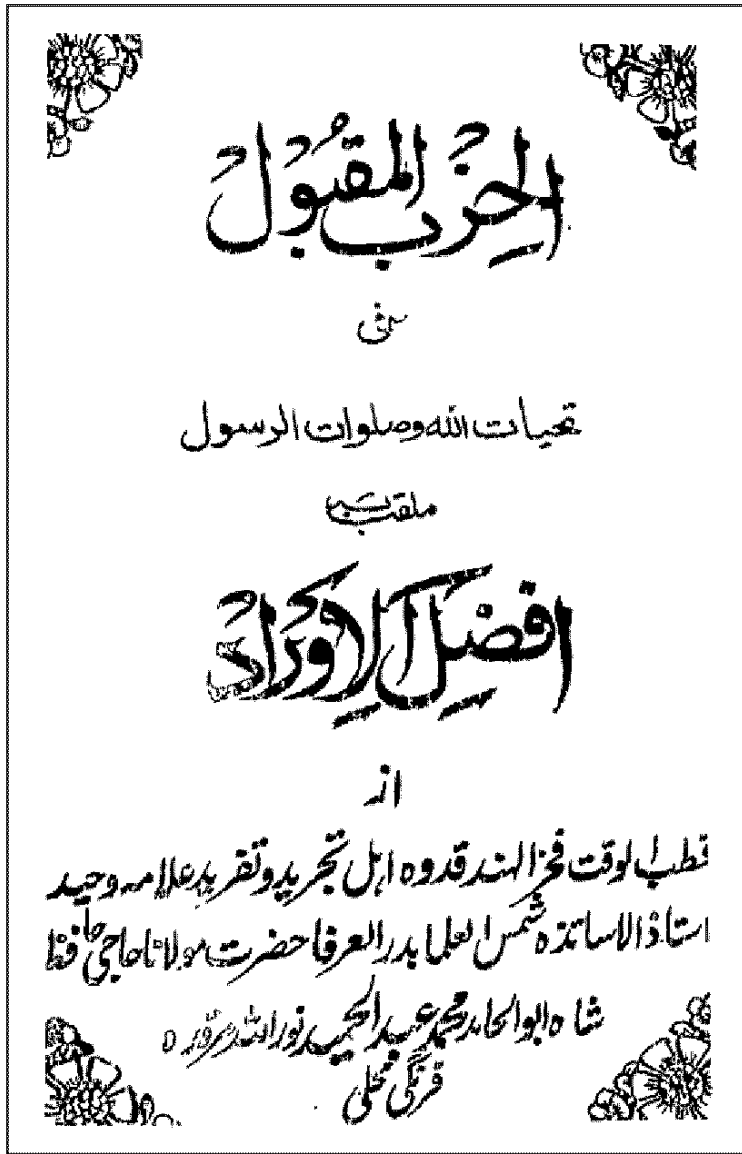 الحزب المقبول
تحیات اللہ وصلوات الرسول
ملقب بہ
افضل الاوراد
از
قطب الوقت فخر الہند قدوہ اہل تجرید و تفرید علامہ وحید
استاذ الاساتذہ شمس العلما بدر العرفا حضرت مولانا حاجی حافظ
شاہ ابوالحامد محمد عبد الحمید نور اللہ مرقدہ
فرنگی محلی